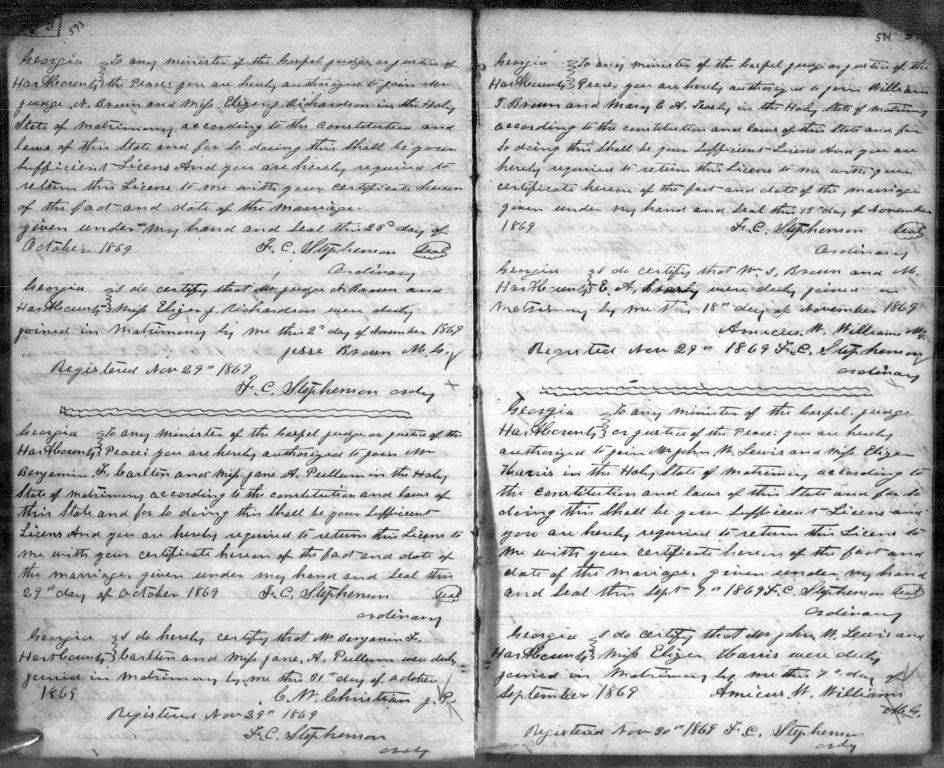 593
Georgia To any minister of the Gospel judge or justice of
Hart County the Peace: you are hereby authorized to join Mr
judge N. Brown and Miss Elizer J. Richardson in the Holy
State of matrimony according to the constitution and
laws of this State and for so doing this Shall be your
Sufficient Licens And you are hereby required to
return this Licens to me with your certificate hereon
of the fact and date of the marriage
given under my hand and Seal this 28th day of
October 1869 F. C. Stephenson Seal
Ordinary
Georgia I do certify that Mr judge N Brown and
Hart County Miss Elizer J. Richardson were duly
joined in matrimony by me this 2d day of November 1869
jesse Brown M. G.
Registered Nov 29th 1869
F. C. Stephenson ordy
Georgia To any minister of the Gospel judge or justice of the
Hart County Peace: you are hereby authorized to join Mr
Benjamin F. Carlton and Miss Jane A. Pullum in the Holy
State of matrimony according to the constitution and laws of
this State and for so doing this Shall be your Sufficient
Licens And you are hereby required to return this Licens to
me with your certificate hereon of the fact and date of
the marriage. given under my hand and Seal this
29th day of October 1869 F. C. Stephenson Seal
ordinary
Georgia I do hereby certify that Mr Benjamin F.
Hart County Carlton and Miss Jane. A. Pullum were duly
joined in Matrimony by me this 31st day of october
1869 C. W. Christian J. P.
Registered Nov 29th 1869
F. C. Stephenson
ordy
594
Georgia To any minister of the Gospel judge or justice of the
Hart County Peace, you are hereby authorized to join William
S. Brown and Mary E. A. in the Holy State of matrimony
according to the constitution and laws of this State and for
So doing this Shall be your Sufficient Licens And you are
hereby required to return this Licens to me with your
certificate hereon of the fact and date of the marriage
given under my hand and Seal this 15th day of November
1869 F. C. Stephenson Seal
Ordinary
Georgia I do certify that Wm. S. Brown and M.
Hart County E. A. were duly joined in
Matrimony by me this 18th day of November 1869
Amicus. W. Williams M. G.
Registed Nov 29th 1869 F. C. Stephenson
ordinary
Georgia To any minister of the Gospel. judge
Hart County or justice of the Peace: you are hereby
authorized to join Mr John W. Lewis and Miss Elizer
Harris in the Holy State of Matrimony according to
the constitution and laws of this State and for So
doing this Shall be your Sufficient Licens and
you are hereby required to return this Licens to
me with your certificate hereon of the fact and
date of the mariage. given under my hand
and Seal this Sept 7th 1869 F. C. Stephenson Seal
ordinary
Georgia I do certify that Mr John W. Lewis and
Hart County Miss Elizer Harris were duly
joined in Matrimony by me this 7th day of
September 1869 Amicus. W. Williams
M. G.
Registered Nov 30th 1869 F. C. Stephenson
ordy